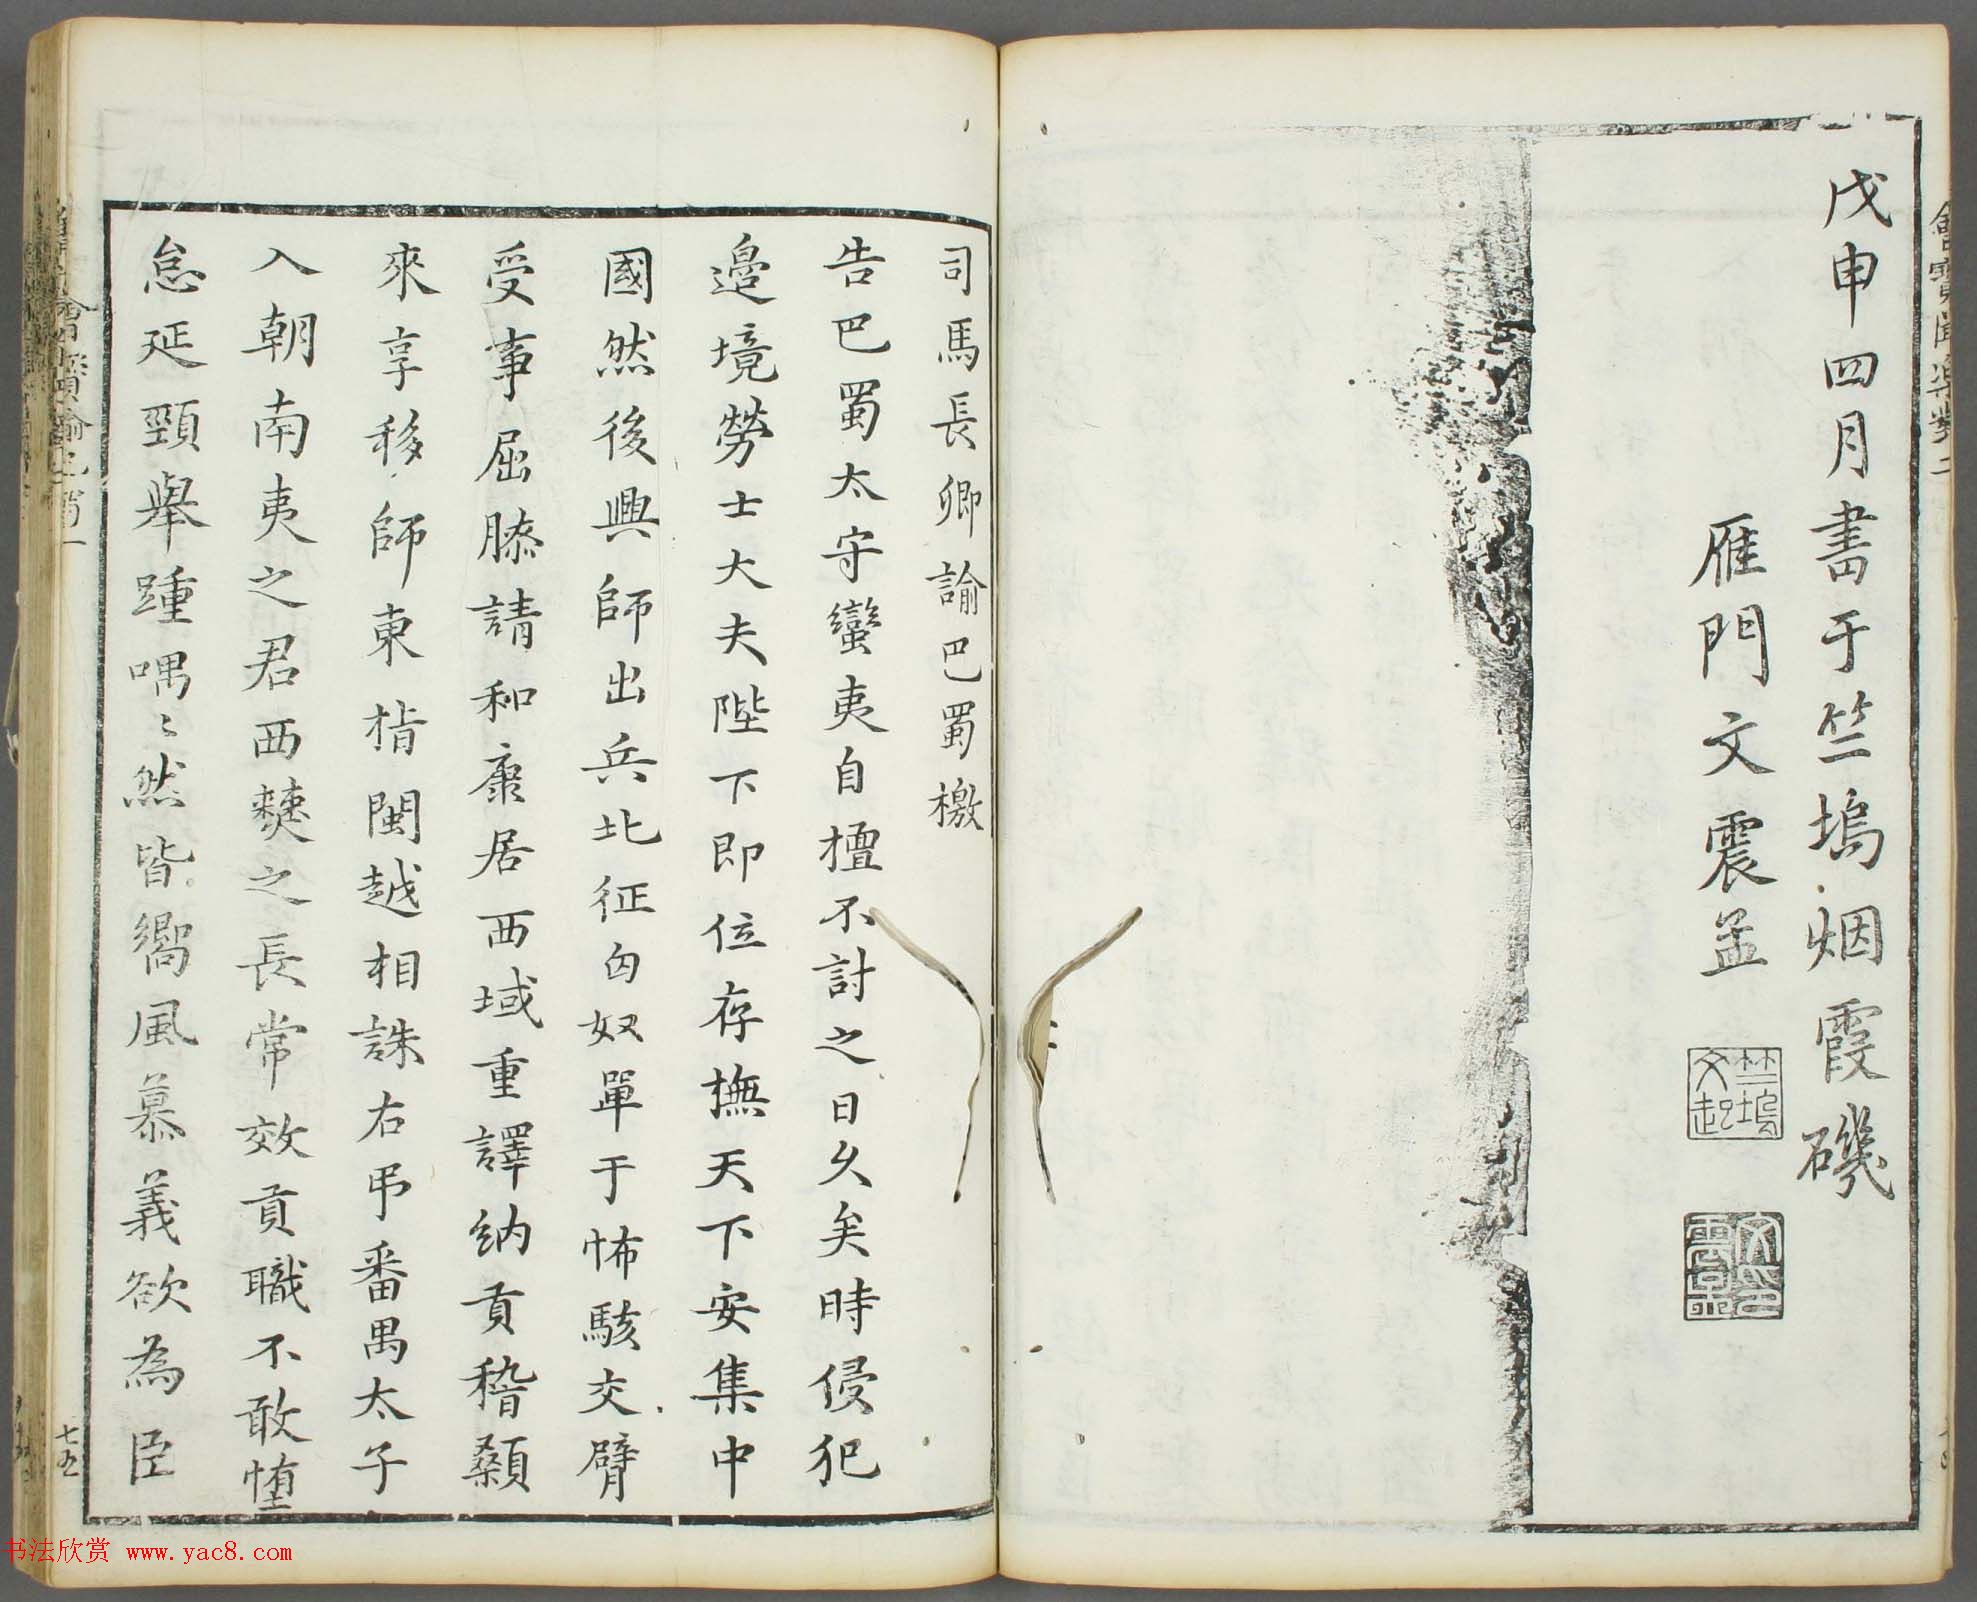 戊申四月書于竺塢烟霞磯
雁門文震孟
竺塢
文起
司馬長卿諭巴蜀檄
告巴蜀太守蠻夷自擅不討之日久矣時侵犯
邉境勞士大夫陛下即位存撫天下安集中
國然後興師出兵北征匈奴單于怖駭交臂
受事屈膝請和康居西域重譯納貢稽顙
來享移師東指閩越相誅右弔番禺太子
入朝南夷之君西僰之長常效貢職不敢惰
怠延頸舉踵喁〻然皆嚮風慕義欲為臣
七五
书法欣赏 www.yac8.com